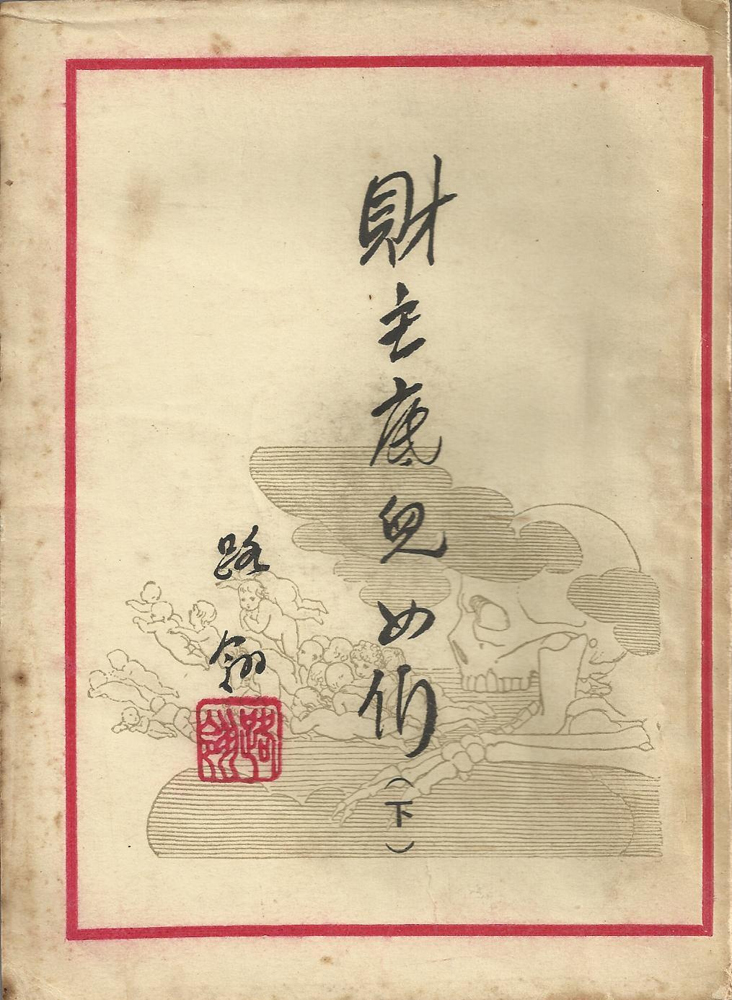 財主底兒女們
（下）
路翎
路翎